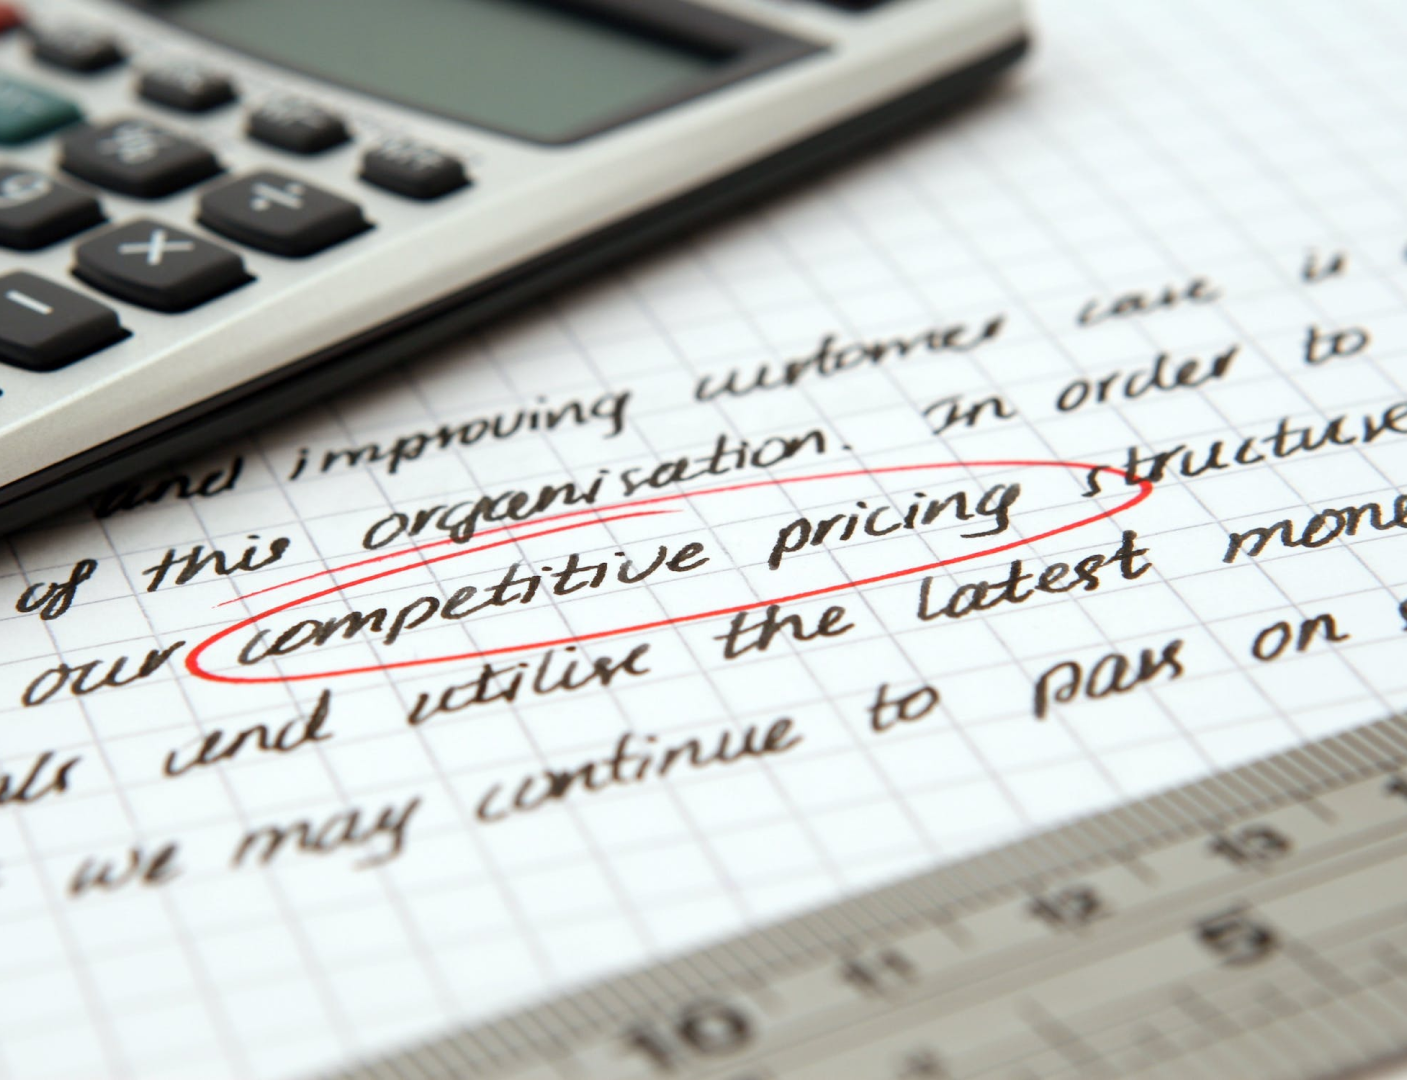 and improving customer care is
of this organisation. In order to
our competitive pricing structure
and utilise the latest
we may continue to pass on
9 % ÷
×
−
10 11 12 13
5